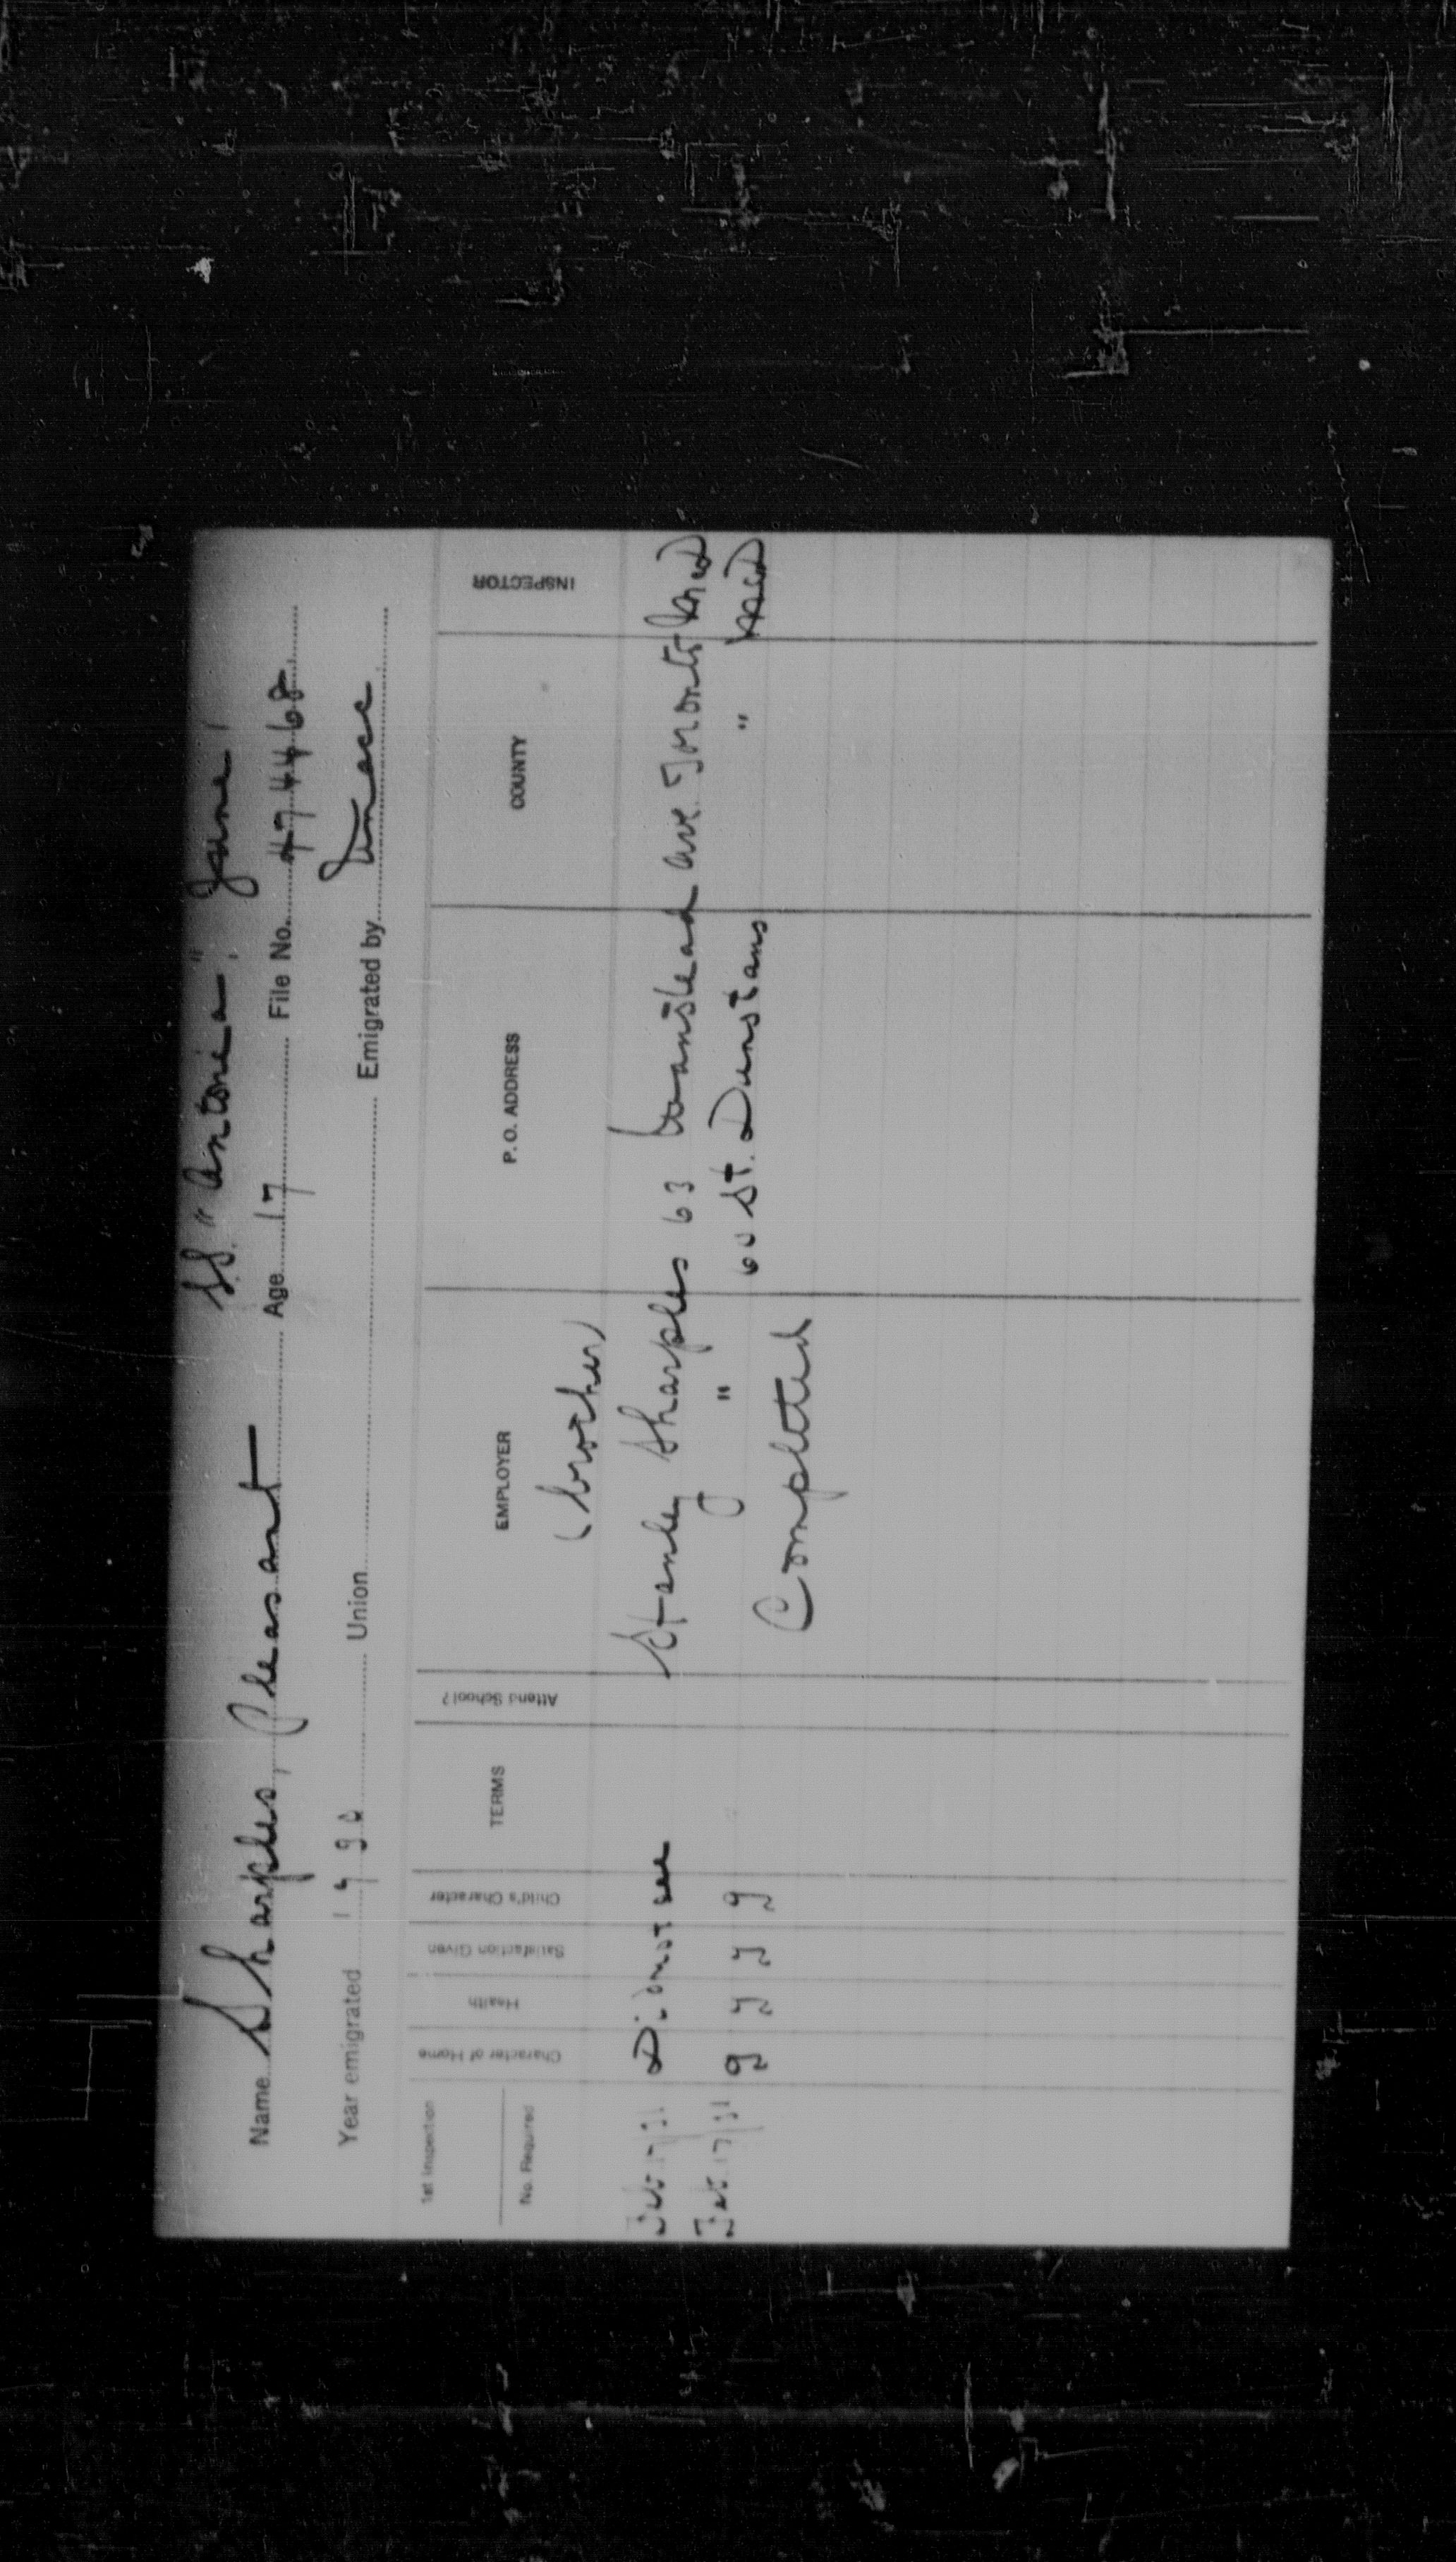 S.S. "Antonia", June 1
Name Sharples, Pleasant Age 17 File No. 474468
Year emigrated 1930 Union Emigrated by
1st Inspection
No. Required
Character of Home
Health
Satisfaction Given
Child's Character
TERMS
Attend School?
EMPLOYER
P. O. ADDRESS
COUNTY
INSPECTOR
(brother)
Feb 17/31 Did not see Stanley Sharples 63 Wanstead Ave Toronto
Feb 17/31 g g g g " 60 St. Dunstans "
Completed